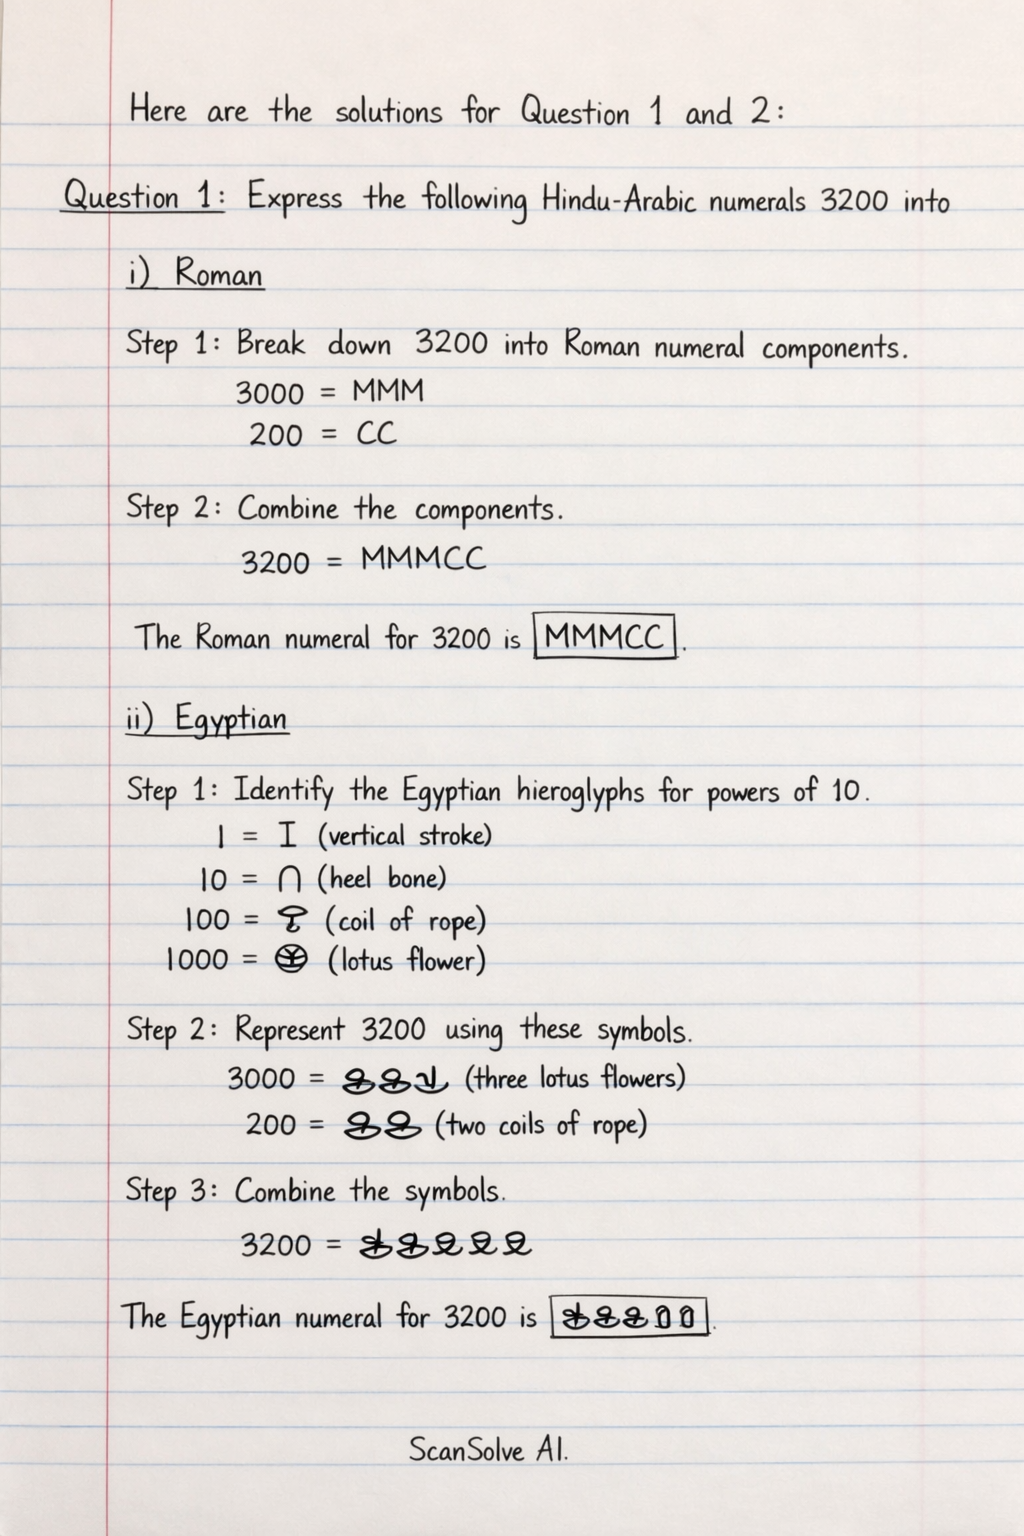 Here are the solutions for Question 1 and 2:
Question 1: Express the following Hindu-Arabic numerals 3200 into
i) Roman
Step 1: Break down 3200 into Roman numeral components.
3000 = MMM
200 = CC
Step 2: Combine the components.
3200 = MMMCC
The Roman numeral for 3200 is MMMCC.
ii) Egyptian
Step 1: Identify the Egyptian hieroglyphs for powers of 10.
1 = I (vertical stroke)
10 = ∩ (heel bone)
100 = (coil of rope)
1000 = (lotus flower)
Step 2: Represent 3200 using these symbols.
3000 = (three lotus flowers)
200 = (two coils of rope)
Step 3: Combine the symbols.
3200 =
The Egyptian numeral for 3200 is
ScanSolve AI.